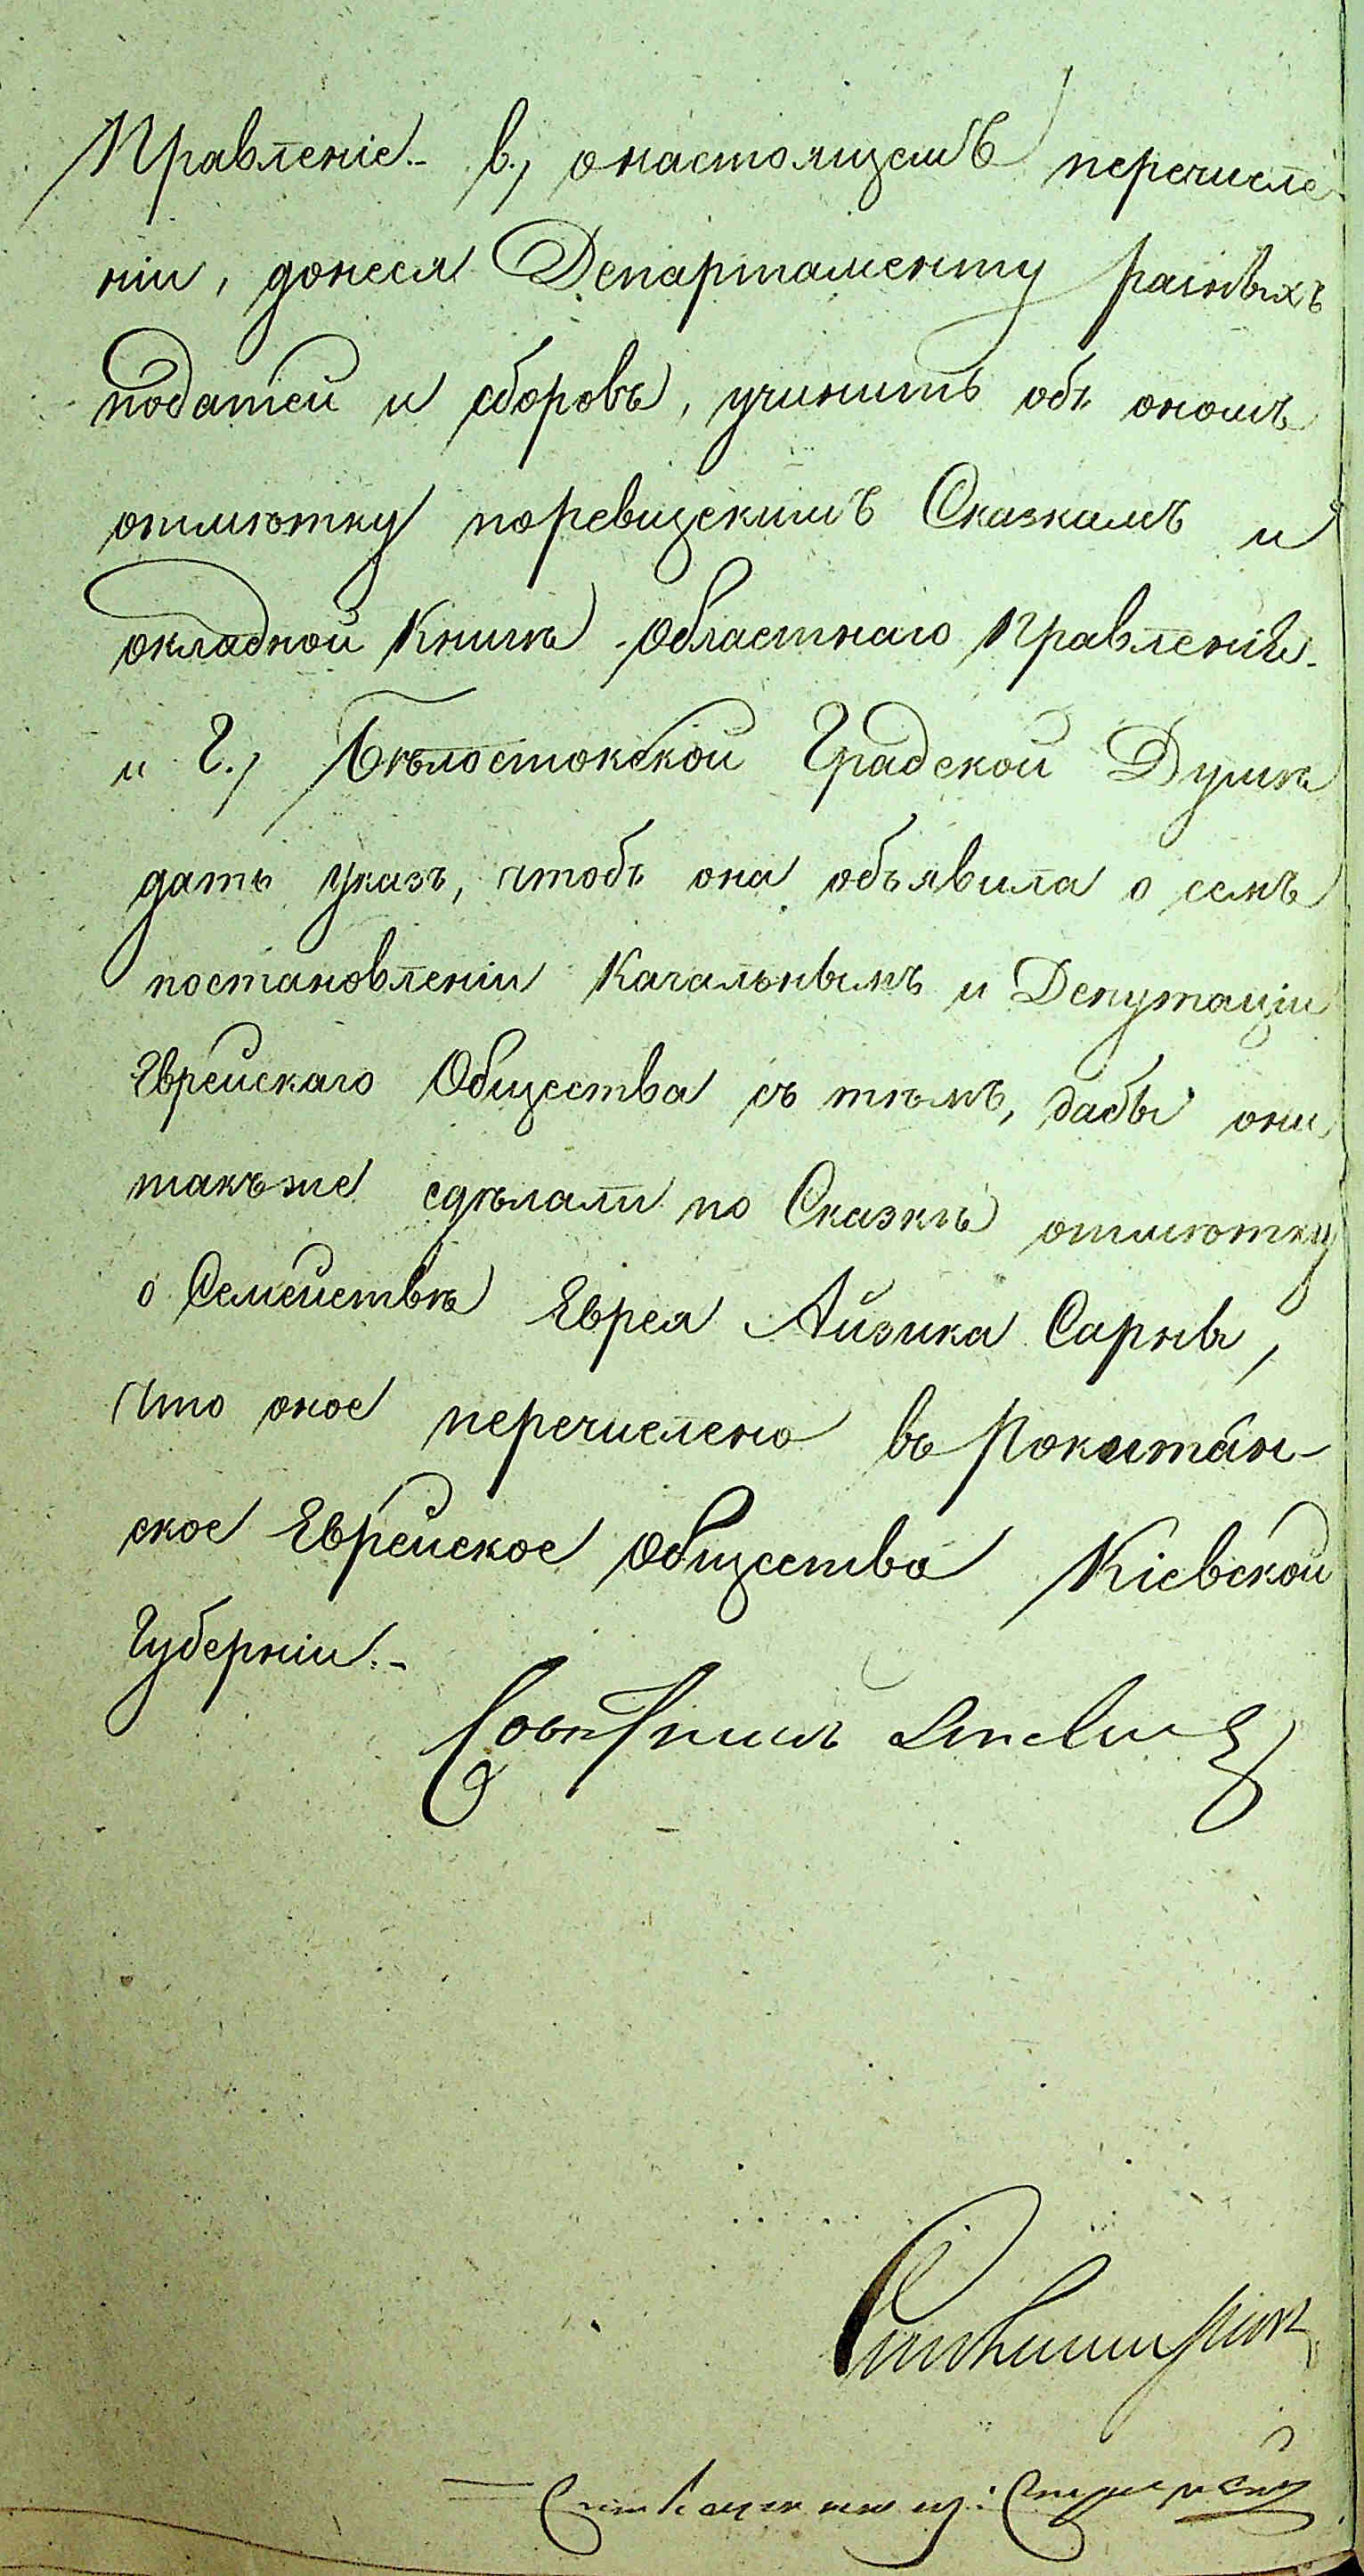 Правленіе.- в., онастоящемъ перечисле-
ніи, донеся Департаменту разныхъ
податей и сборовъ, учинить объ ономъ
отмѣтку поревизскимъ Сказкамъ и
окладной Книгѣ Областнаго Правленія.
и Г., Бѣлостокской Градской Думѣ
дать указъ, чтобъ она объявила о семъ
постановленіи Кагальнымъ и Депутаціи
Еврейскаго Общества съ тѣмъ, дабы они
такъже сдѣлали по Сказкѣ отмѣтку
о Семействѣ Еврея Айзика Сарнъ,
что оное перечислено въ Рокитан-
ское Еврейское Общество Кіевской
Губерніи.-
Совѣтникъ